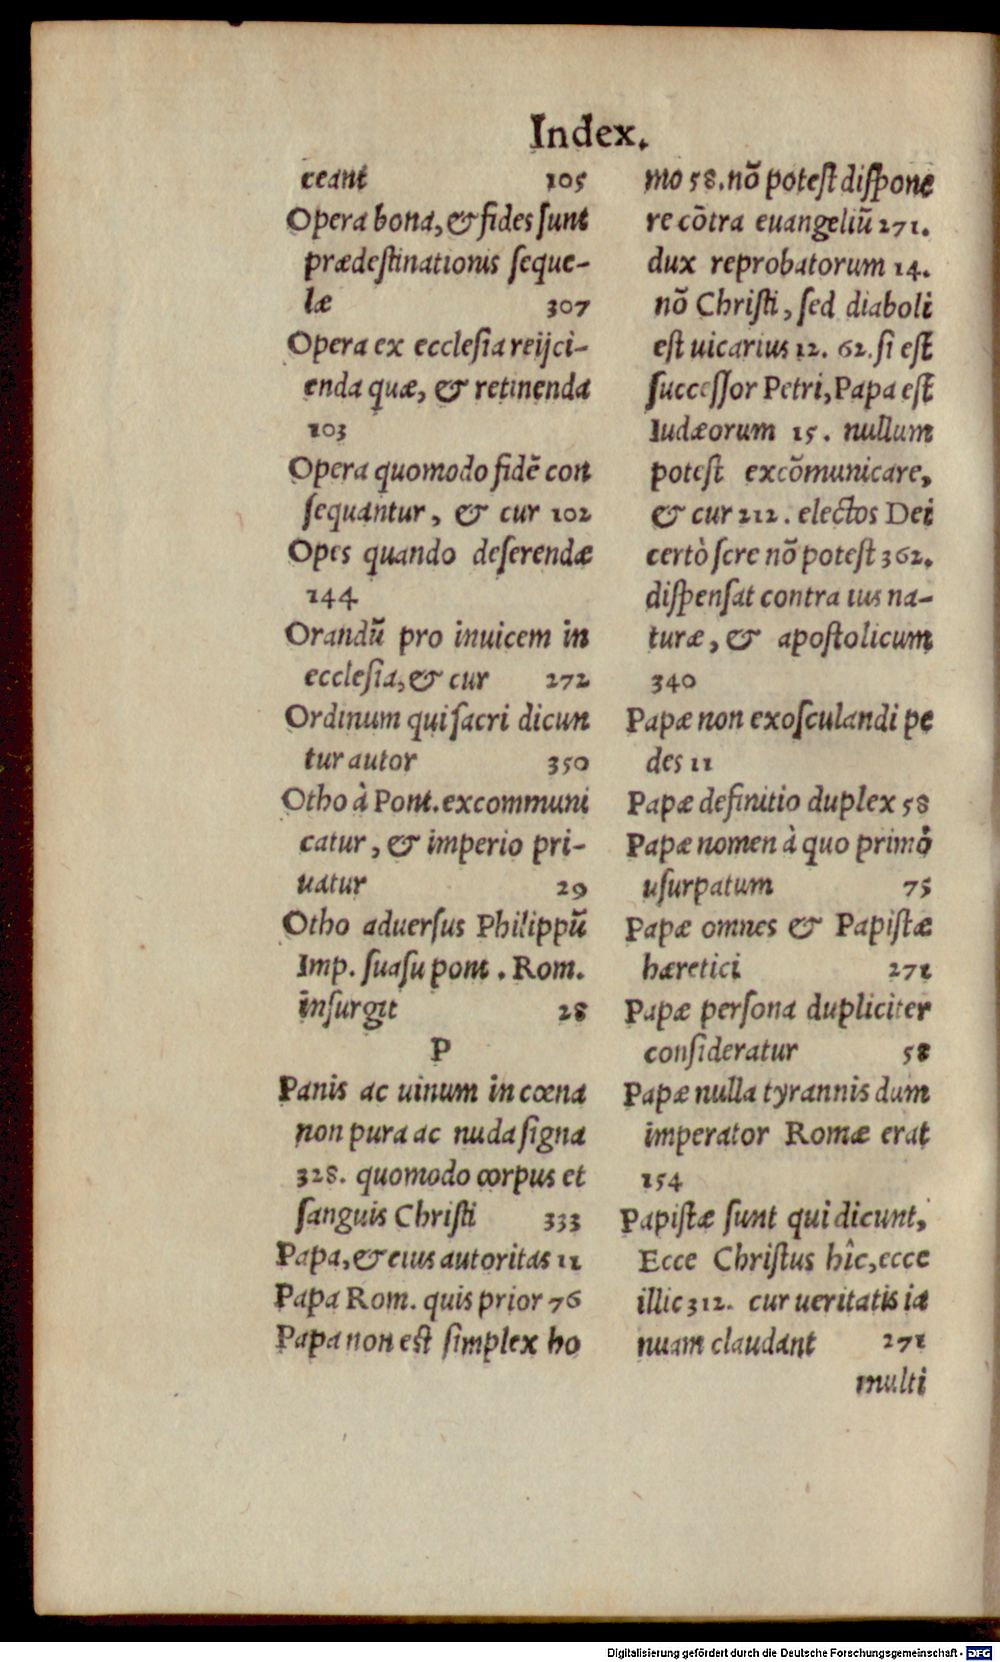 Index.
ceant 105
Opera bona, & fides sunt
prædestinationis seque-
læ 307
Opera ex ecclesia reijci-
enda quæ, & retinenda
103
Opera quomodo fidẽ con
sequantur, & cur 102
Opes quando deserendæ
144
Orandũ pro inuicem in
ecclesia, & cur 272
Ordinum qui sacri dicun
tur autor 350
Otho à Pont. excommuni
catur, & imperio pri-
uatur 29
Otho aduersus Philippũ
Imp. suasu pont. Rom.
insurgit 28
P
Panis ac uinum in cœna
non pura ac nuda signa
328. quomodo corpus et
sanguis Christi 333
Papa, & eius autoritas 11
Papa Rom. quis prior 76
Papa non est simplex ho
mo 58. nõ potest dispone
re cõtra euangeliũ 271.
dux reprobatorum 14.
nõ Christi, sed diaboli
est uicarius 12. 62. si est
successor Petri, Papa est
Iudæorum 15. nullum
potest excõmunicare,
& cur 212. electos Dei
certò scre nõ potest 362.
dispensat contra ius na-
turæ, & apostolicum
340
Papæ non exosculandi pe
des 11
Papæ definitio duplex 58
Papæ nomen à quo primò
usurpatum 75
Papæ omnes & Papistæ
hæretici 271
Papæ persona dupliciter
consideratur 58
Papæ nulla tyrannis dum
imperator Romæ erat
154
Papistæ sunt qui dicunt,
Ecce Christus hîc, ecce
illic 312. cur ueritatis ia
nuam claudant 271
multi
Digitalisierung gefördert durch die Deutsche Forschungsgemeinschaft - DFG